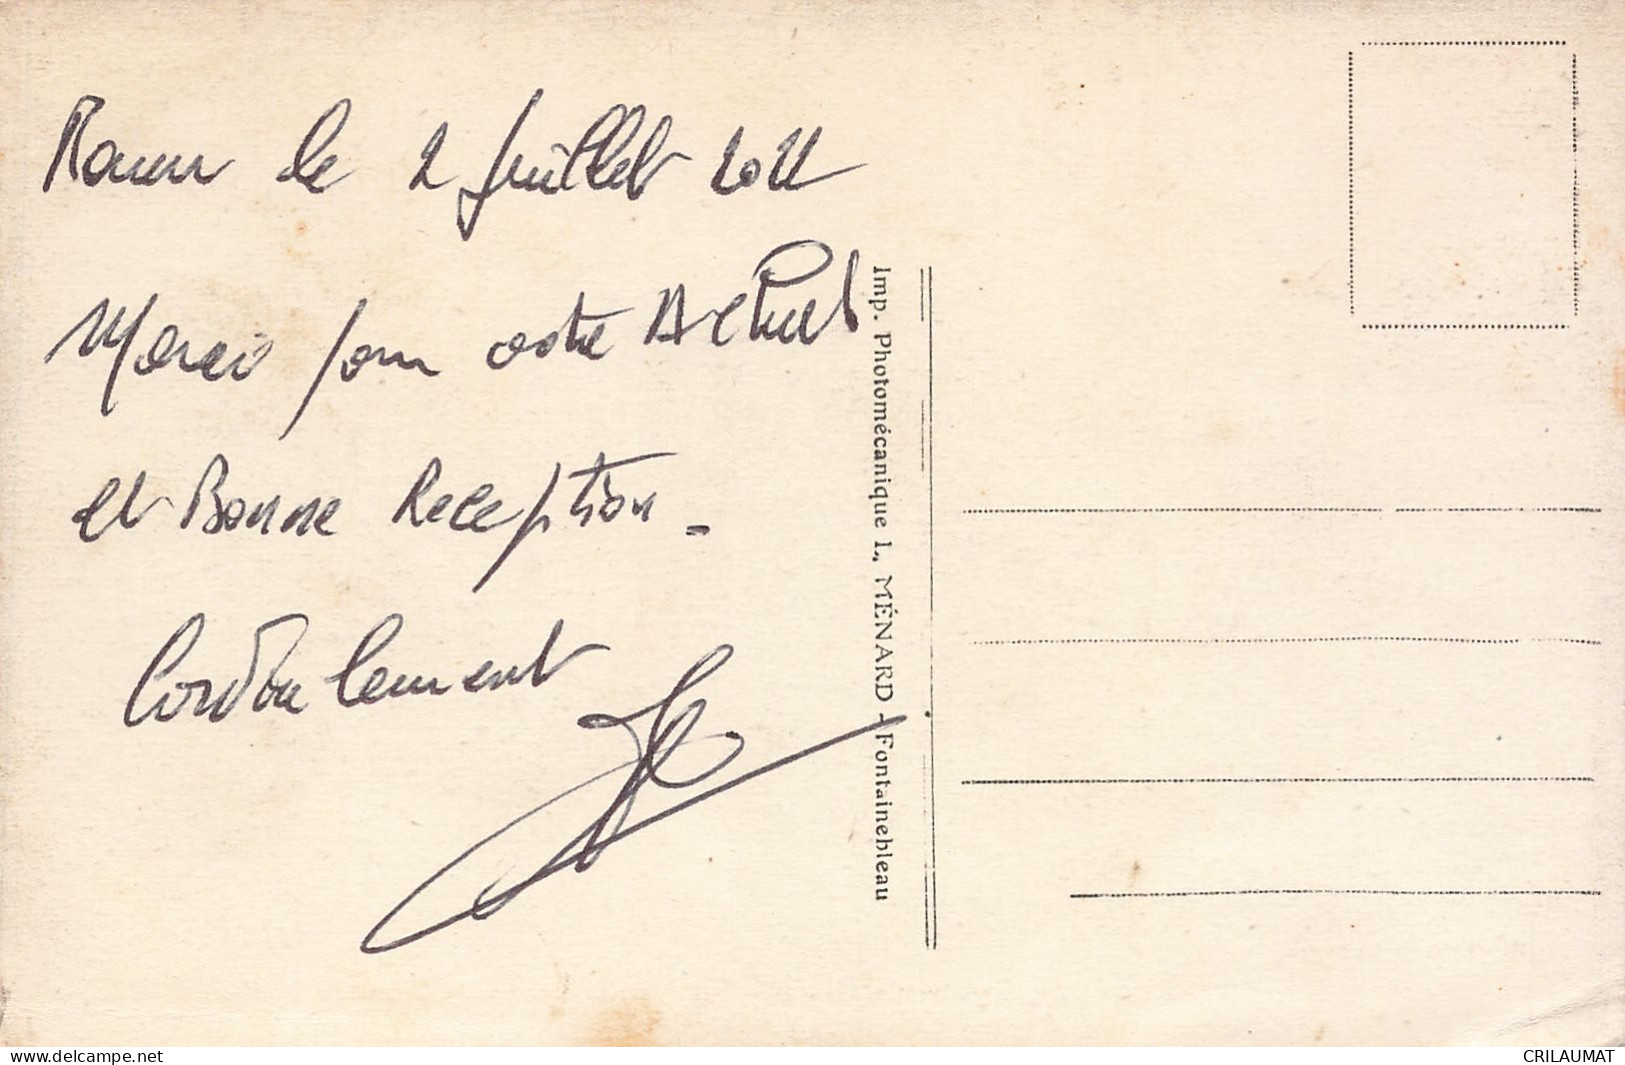 Rouen le 2 Juillet 2022
Merci pour votre Achat
et Bonne Reception.
Cordialement
Imp. Photomécanique L. MÉNARD - Fontainebleau
www.delcampe.net
CRILAUMAT